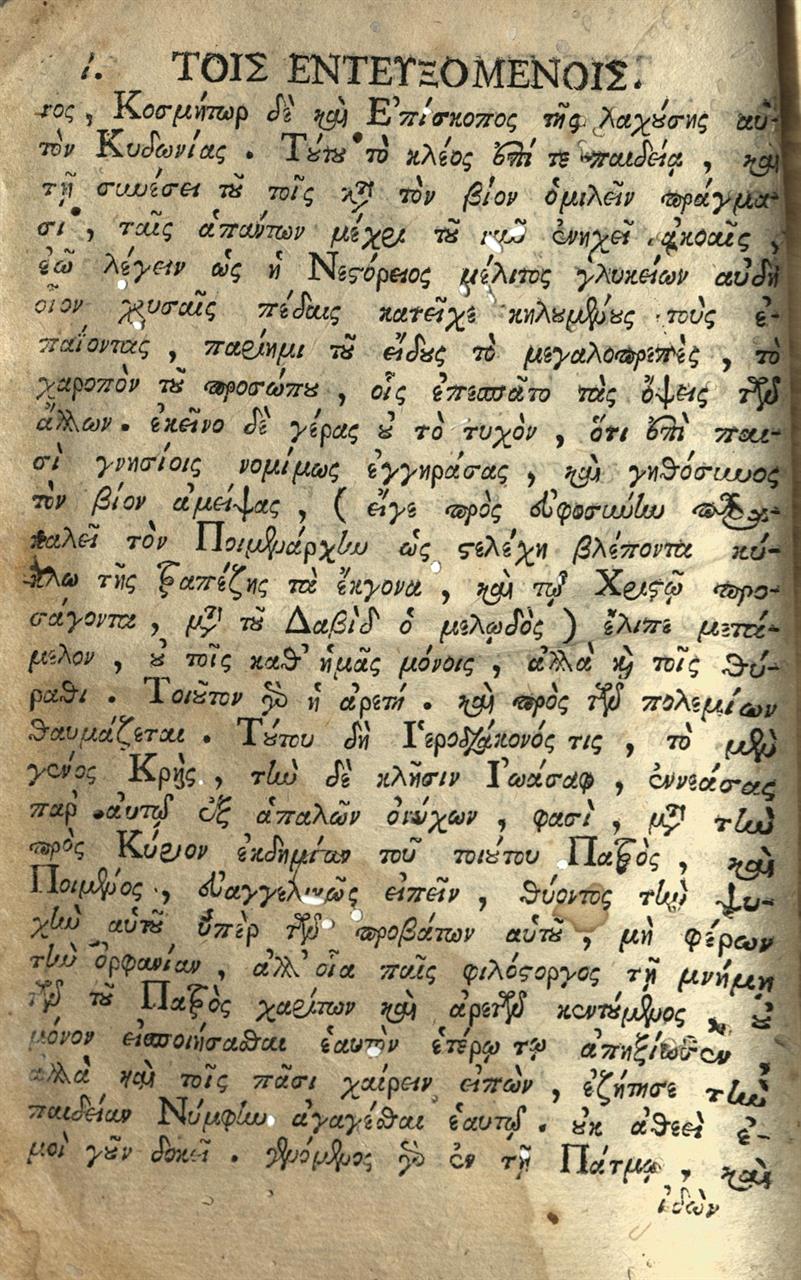 ί. ΤΟΙΣ ΕΝΤΕΥΞΟΜΕΝΟΙΣ.
τος, Κοσμήτωρ δὲ καὶ Ἐπίσκοπος τῆς λαχούσης αὐ-
τὸν Κυδωνίας. Τούτου τὸ κλέος ἐπί τε παιδείᾳ, καὶ
τῇ συνέσει τοῦ τοῖς κατὰ τὸν βίον ὁμιλεῖν πράγμα-
σι, ταῖς ἁπάντων μέχρι τοῦ νῦν ἐνηχεῖ ἀκοαῖς,
ἐῶ λέγειν ὡς ἡ Νεστόρειος μέλιτος γλυκείων αὐδὴ
οἷον χρυσαῖς πέδαις κατεῖχε κηλουμένους τοὺς ἐ-
παΐοντας, παρίημι τοῦ εἴδους τὸ μεγαλοπρεπὲς, τὸ
χαροπὸν τοῦ προσώπου, οἷς ἐπεσπᾶτο τὰς ὄψεις τῶν
ἄλλων. ἐκεῖνο δὲ γέρας οὐ τὸ τυχὸν, ὅτι ἐπὶ παι-
σὶ γνησίοις νομίμως ἐγγηράσας, καὶ γηθόσυνος
τὸν βίον ἀμείψας, (εἴγε πρὸς εὐφροσύνην
καλεῖ τὸν Ποιμενάρχην ὡς στελέχη βλέποντα κύ-
κλω τῆς τραπέζης τὰ ἔκγονα, καὶ τῷ Χριστῷ προ-
σάγοντα, μετὰ τοῦ Δαβὶδ ὁ μελῳδὸς) ἔλιπε μετά-
μελον, οὐ τοῖς καθ' ἡμᾶς μόνοις, ἀλλὰ καὶ τοῖς θύ-
ραθι. Τοιοῦτον γὰρ ἡ ἀρετή. καὶ πρὸς τῶν πολεμίων
θαυμάζεται. Τούτου δὴ Ἱεροδιάκονός τις, τὸ μὲν
γένος Κρὴς, τὴν δὲ κλῆσιν Ἰωάσαφ, ἐννεάσας
παρ' αὐτῷ ἐξ ἁπαλῶν ὀνύχων, φασὶ, μετὰ τὴν
πρὸς Κύριον ἐκδημίαν τοῦ τοιούτου Πατρὸς, καὶ
Ποιμένος, εὐαγγελικῶς εἰπεῖν, θύοντος τὴν ψυ-
χὴν αὑτοῦ ὑπὲρ τῶν προβάτων αὑτοῦ, μὴ φέρων
τὴν ὀρφανίαν, ἀλλ' οἷα παῖς φιλόστοργος τῇ μνήμῃ
τῶν τοῦ Πατρὸς χαρίτων καὶ ἀρετῶν κεντούμενος, οὐ
μόνον εἰσποιήσασθαι ἑαυτὸν ἑτέρῳ τῳ ἀπηξίωσεν,
ἀλλὰ καὶ τοῖς πᾶσι χαίρειν εἰπὼν, ἐζήτησε τὴν
παιδείαν Νύμφην ἀγαγέσθαι ἑαυτῷ. οὐκ ἀθεεὶ ἐ-
μοὶ γοῦν δοκεῖ. γενόμενος γὰρ ἐν τῇ Πάτμῳ, καὶ
ἰδὼν